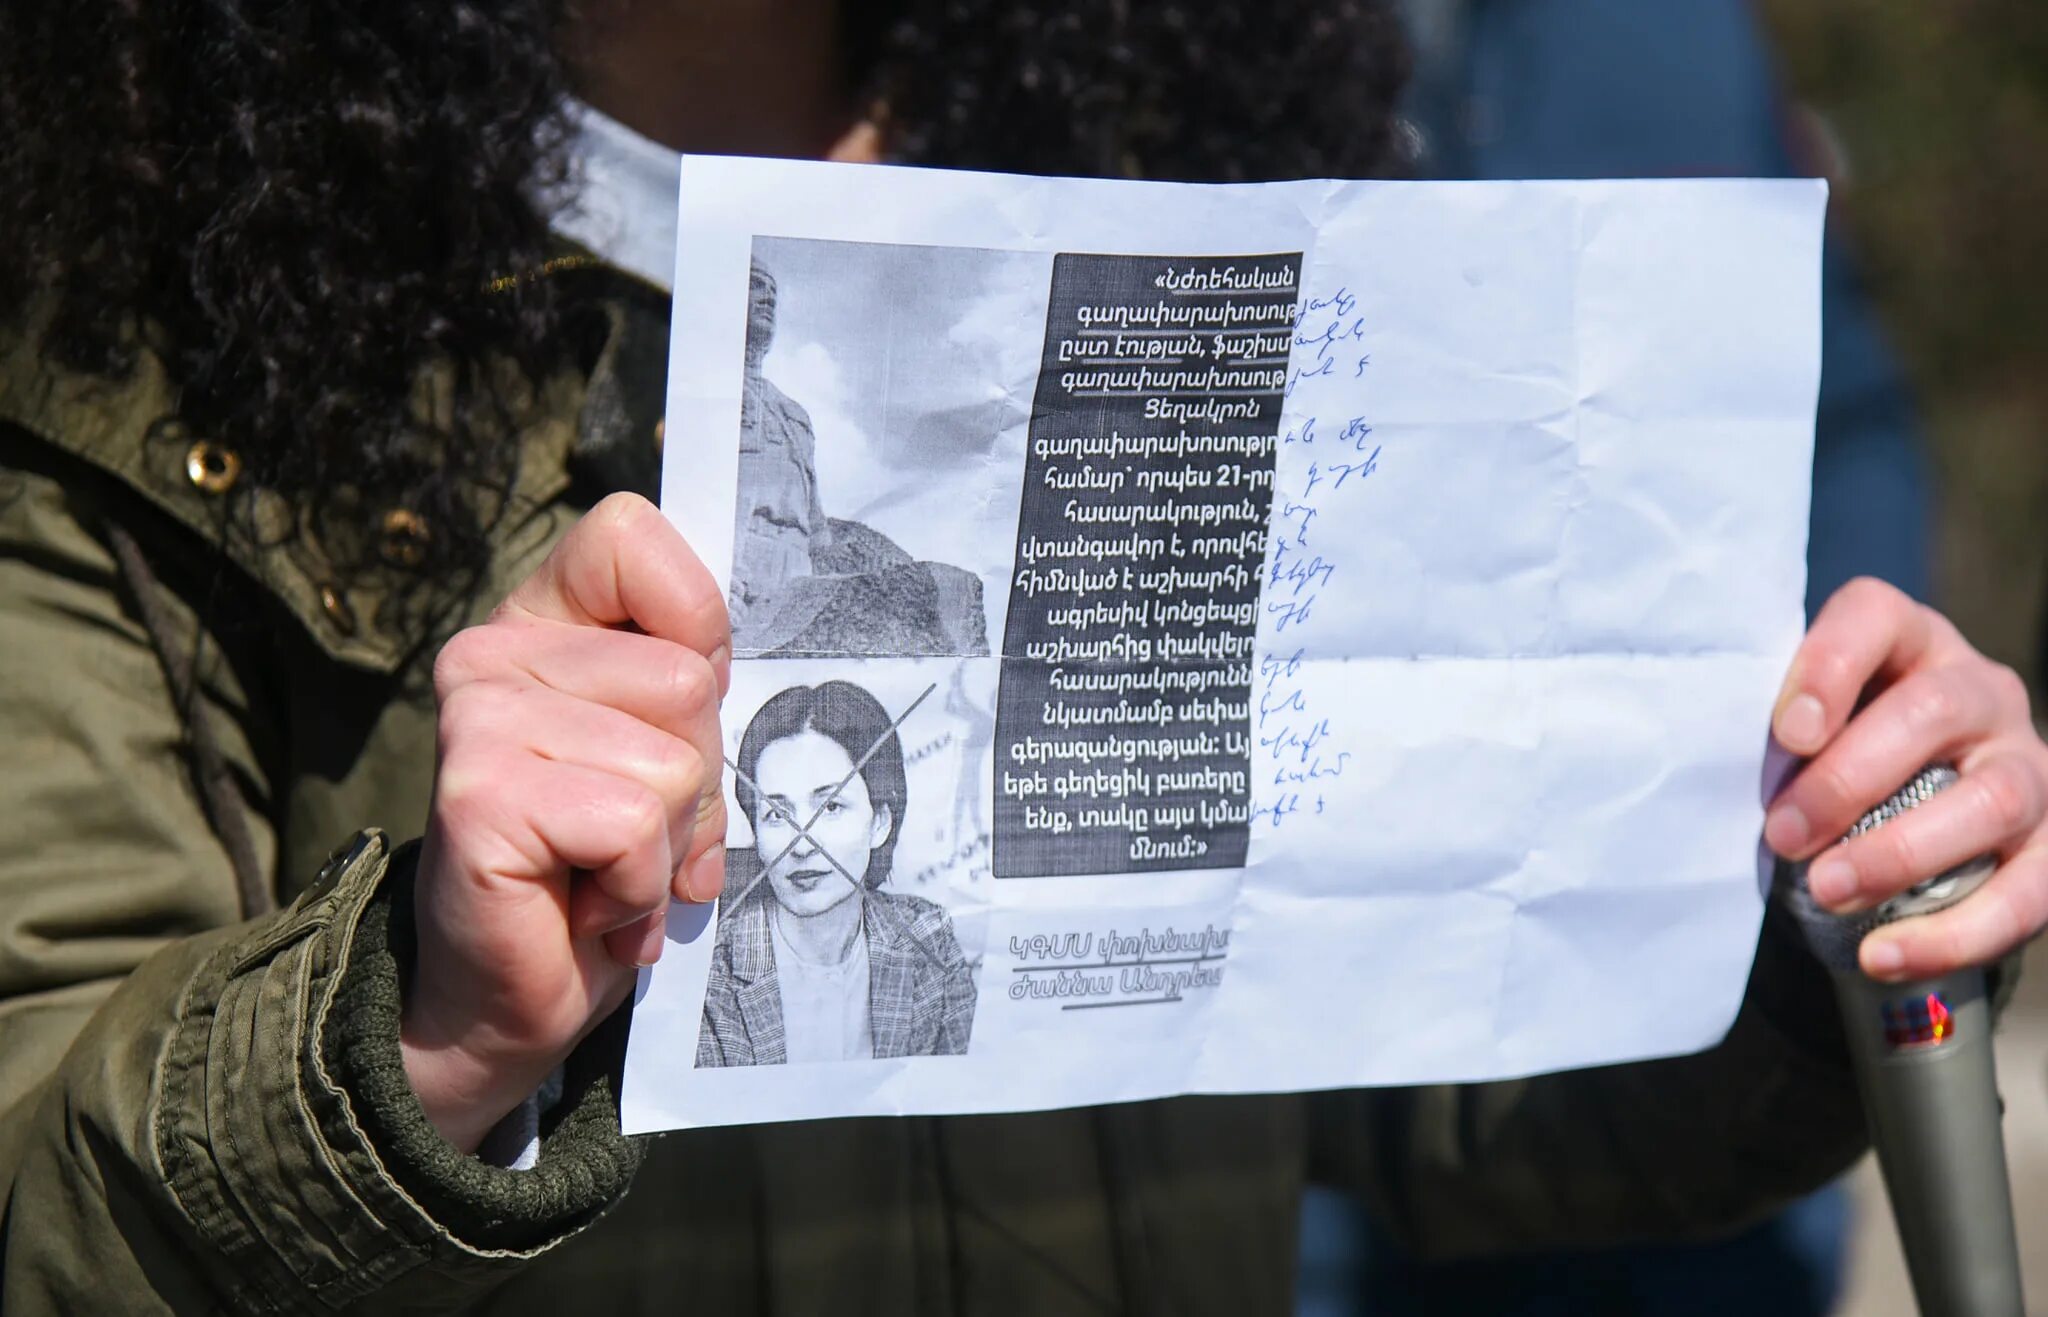 «Նժդեհական
գաղափարախոսությանը
ըստ էության, ֆաշիստական
գաղափարախոսության է
Ցեղակրոն
գաղափարախոսությունն մեզ
համար՝ որպես 21-րդ դարի
հասարակություն, շատ
վտանգավոր է, որովհետև
հիմնված է աշխարհի հանդեպ
ագրեսիվ կոնցեպցիայի
աշխարհից փակվելու
հասարակություննն
նկատմամբ սեփական
գերազանցության: Այ
եթե գեղեցիկ բառերը հանում
ենք, տակը այս կմախքն է
մնում:»
ԿԳՄՍ փոխնախ
Ժաննա Անդրեա